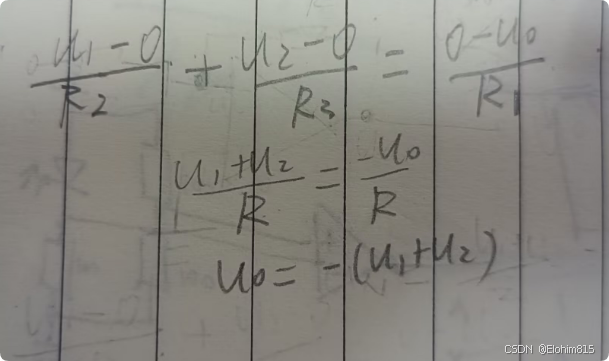 (u₁-0)/R₂ + (u₂-0)/R₃ = (0-u₀)/R₁
(u₁+u₂)/R = -u₀/R
u₀ = -(u₁+u₂)
CSDN @Elohim815